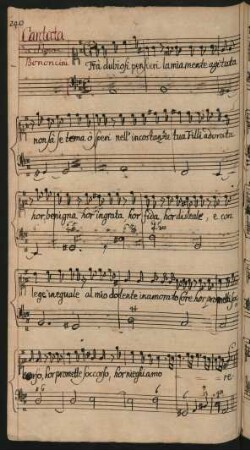 240
Cantata
Bononcini
Frà dubiosi pensieri la mia mente agitata
non sà se tema ò speri nell' incostanza tua Filli adorata
hor benigna, hor ingrata, hor fida, hor disleale, e con
legge ineguale al mio dolente inamorato core hor prometti
hor promette soccorso, hor neghi amo re